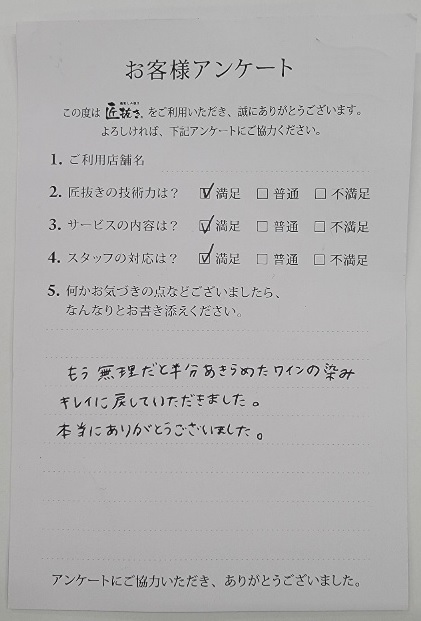 お客様アンケート
この度は 匠抜き をご利用いただき、誠にありがとうございます。
よろしければ、下記アンケートにご協力ください。
1. ご利用店舗名
2. 匠抜きの技術力は? ☑ 満足 □ 普通 □ 不満足
3. サービスの内容は? ☑ 満足 □ 普通 □ 不満足
4. スタッフの対応は? ☑ 満足 □ 普通 □ 不満足
5. 何かお気づきの点などございましたら、
なんなりとお書き添えください。
もう無理だと半分あきらめたワインの染み
キレイに戻していただきました。
本当にありがとうございました。
アンケートにご協力いただき、ありがとうございました。